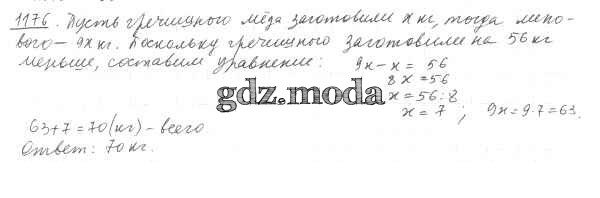 1176. Пусть гречишного мёда заготовили x кг, тогда липо-
вого – 9x кг. Поскольку гречишного заготовили на 56 кг
меньше, составим уравнение: 9x - x = 56
8x = 56
gdz.moda
x = 56 : 8
x = 7 ; 9x = 9·7 = 63.
63 + 7 = 70 (кг) – всего
Ответ: 70 кг.